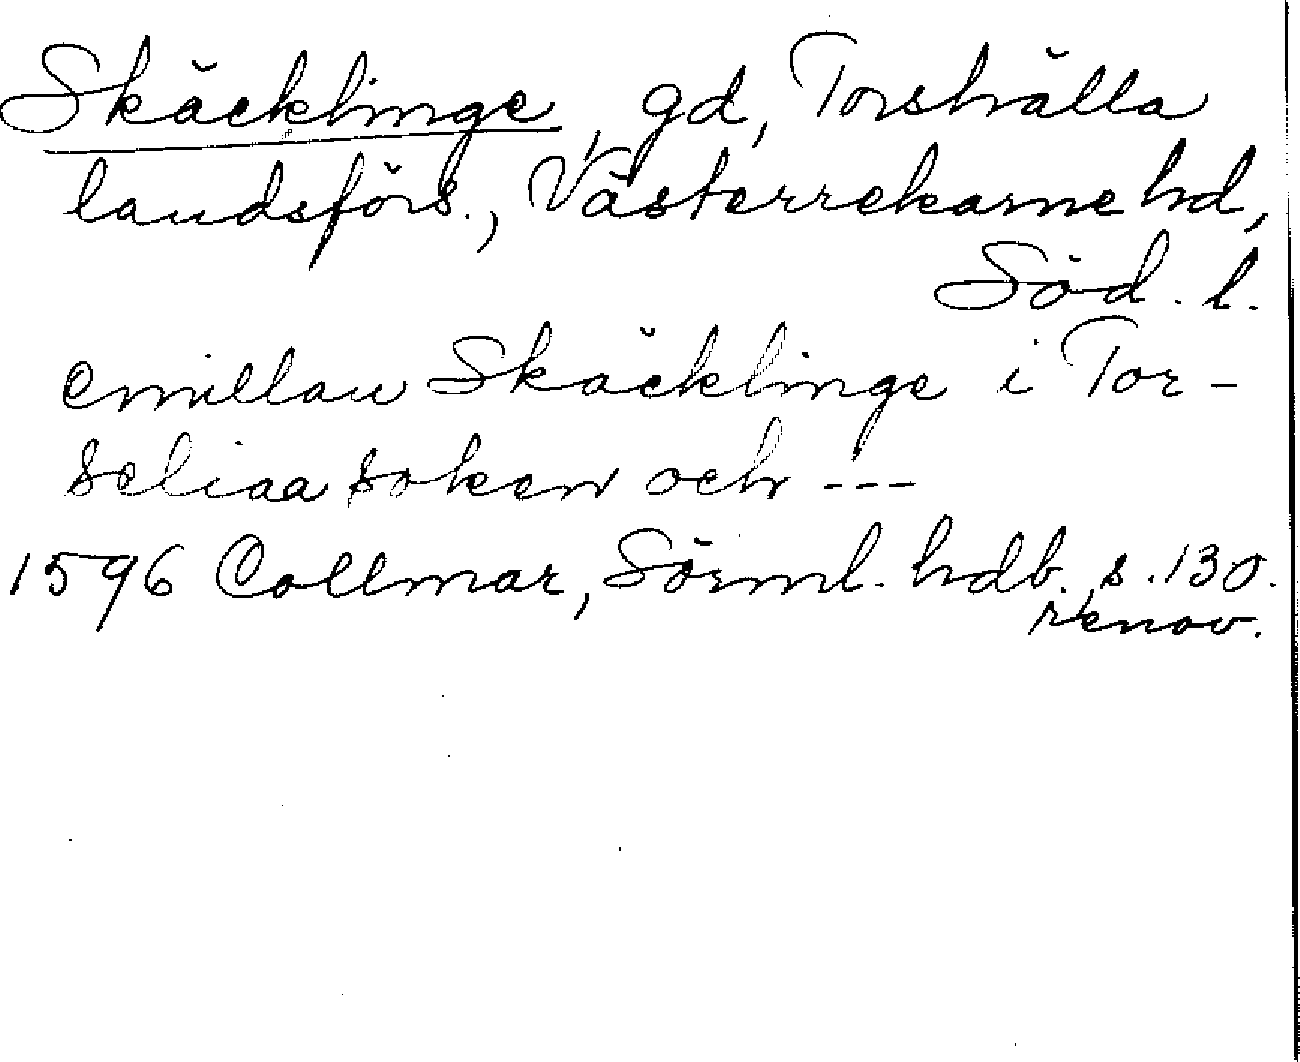 Skäcklinge, gd, Torshälla
landsförs., Västerrekarne hd,
Söd. l.
emillan Skäcklinge i Tor-
seliaa soken och ---
1596 Collmar, Sörml. hdb., s. 130.
renov.